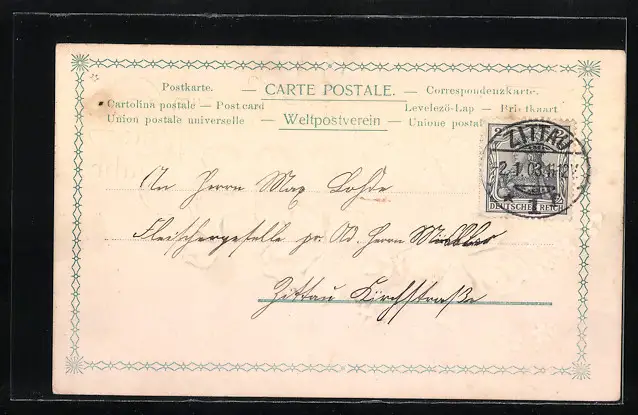 Postkarte. — CARTE POSTALE. — Correspondenzkarte.
Cartolina postale — Post card Levelező-Lap — Briefkaart
Union postale universelle — Weltpostverein — Unione postal
ZITTAU
2.1.03.11-12V.
1
DEUTSCHES REICH
An Herrn Max Lohde
Fleischergeselle pr. Ad. Herrn
Zittau Kirchstraße